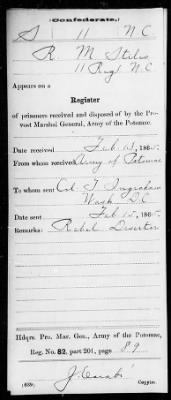 Confederate.
S 11 N C
R. M. Stiles
11 Regt N.C.
Appears on a
Register
of prisoners received and disposed of by the Pro-
vost Marshal General, Army of the Potomac.
Date received Feb 13, 1865.
From whom received Army of Potomac
To whom sent Col. T. Ingraham
Wash. D.C.
Date sent Feb 15, 1865.
Remarks: Rebel Deserter
Hdqrs. Pro. Mar. Gen., Army of the Potomac,
Reg. No. 82, part 201, page 89
(639)
Copyist.